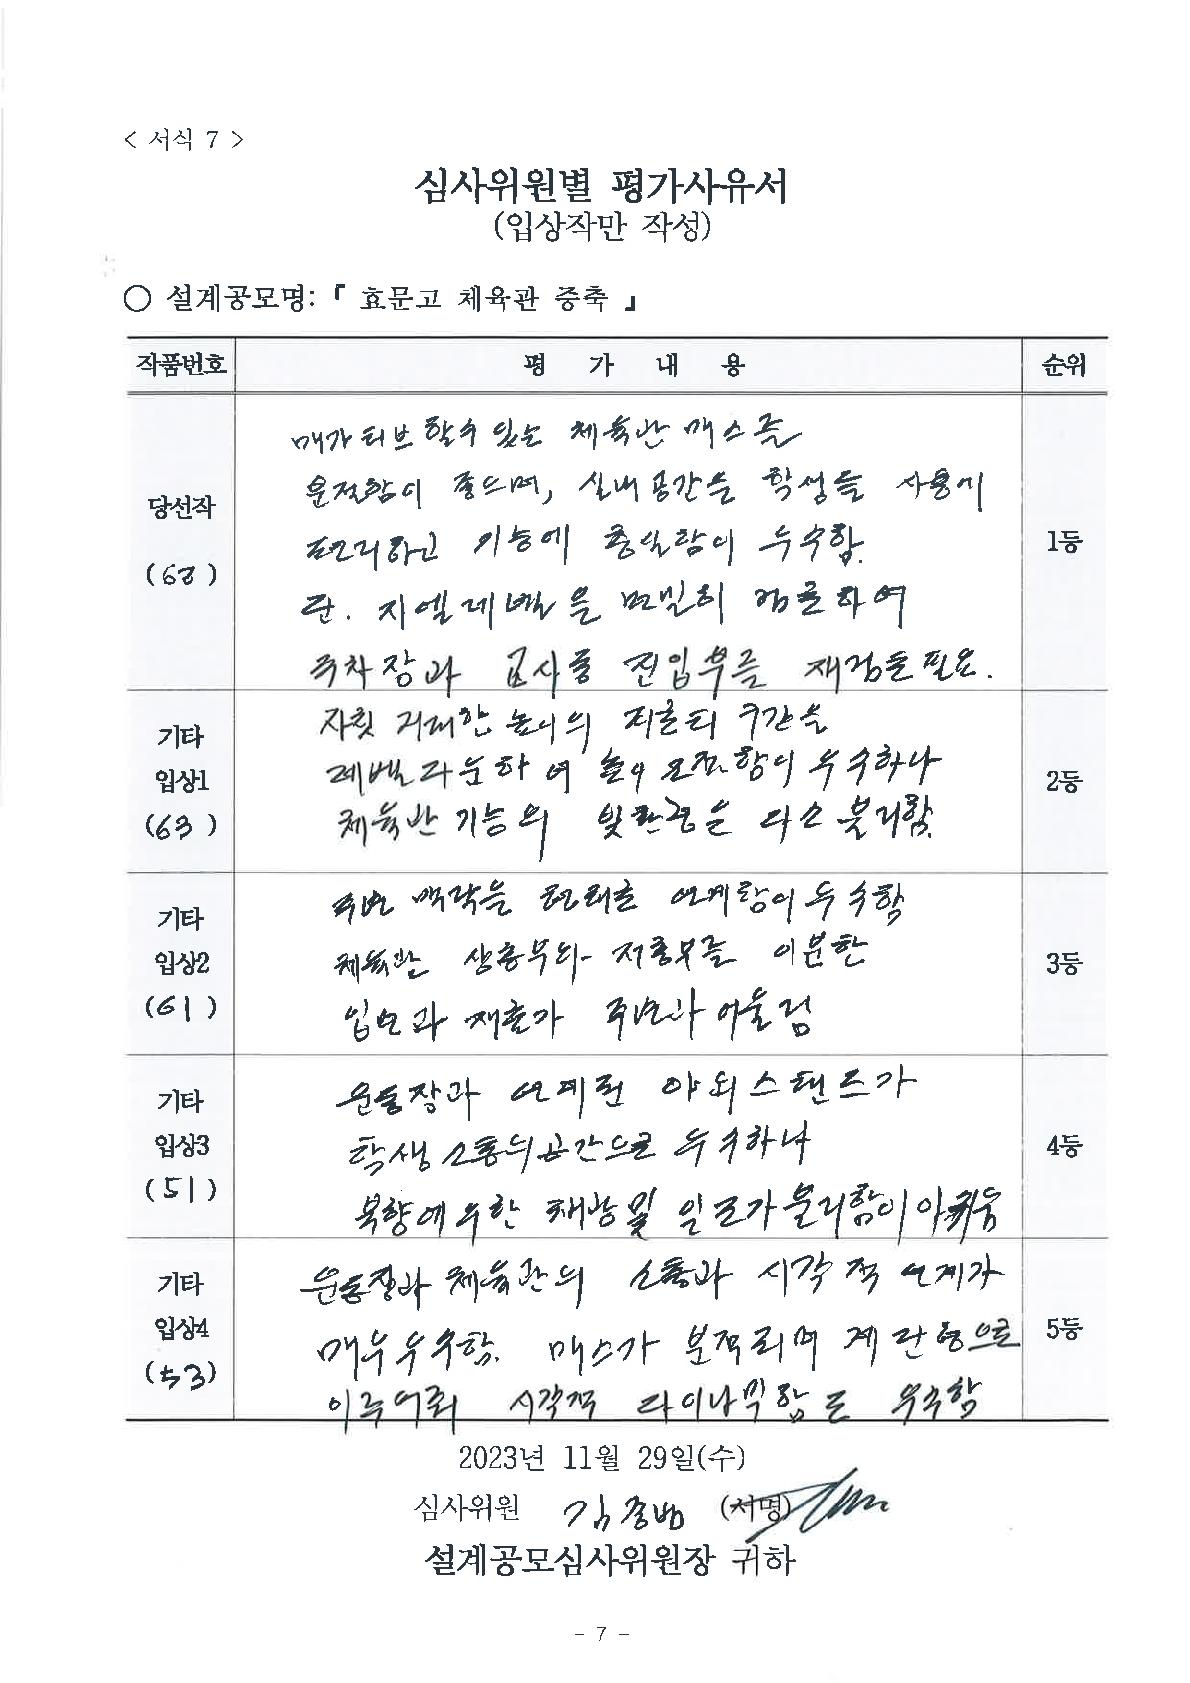 < 서식 7 >
심사위원별 평가사유서
(입상작만 작성)
○ 설계공모명:『 효문고 체육관 증축 』
작품번호 평 가 내 용 순위
당선작
1등
체육관 매스를
좋으며, 실내공간은 학생들 사용이
편리하고 기능에 충실함이 우수함.
단. 지엘레벨을 면밀히 검토하여
주차장과 교사동 진입부를 재검토필요.
기타
입상1
(63)
2등
자칫 거대한 높이의 필로티 구간을
우수하나
체육관 기능의 빛환경은 다소 불리함.
기타
입상2
(61)
3등
주변 맥락을 연계함이 우수함
체육관 상층부와 저층부를 이분한
입면과 재료가 주변과 어울림
기타
입상3
(51)
4등
운동장과 연계된 야외스탠드가
학생 소통의 공간으로 우수하나
북향에 우한 채광 및 일조가 불리함이 아쉬움
기타
입상4
(53)
5등
운동장과 체육관의 소통과 시각적 연계가
매우우수함. 매스가 분절되며 계단형으로
이루어져 시각적 다이나믹함도 우수함
2023년 11월 29일(수)
심사위원 김종범 (서명)
설계공모심사위원장 귀하
- 7 -